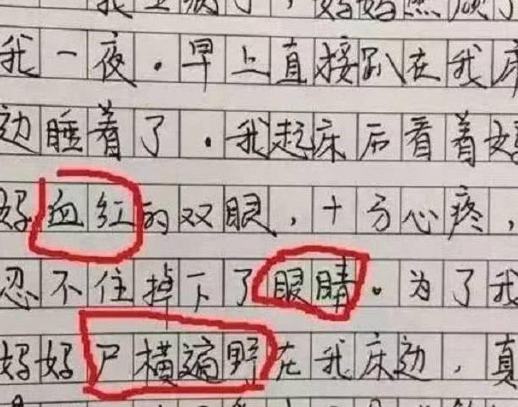 我生病了，妈妈照顾了
我一夜。早上直接趴在我床
边睡着了。我起床后看着妈
妈血红的双眼，十分心疼，
忍不住掉下了眼睛。为了我
妈妈尸横遍野在我床边，真